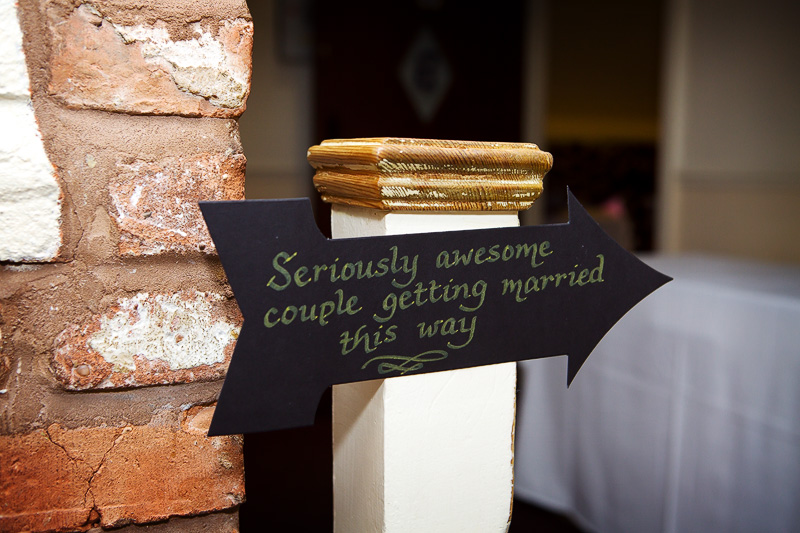 Seriously awesome
couple getting married
this way